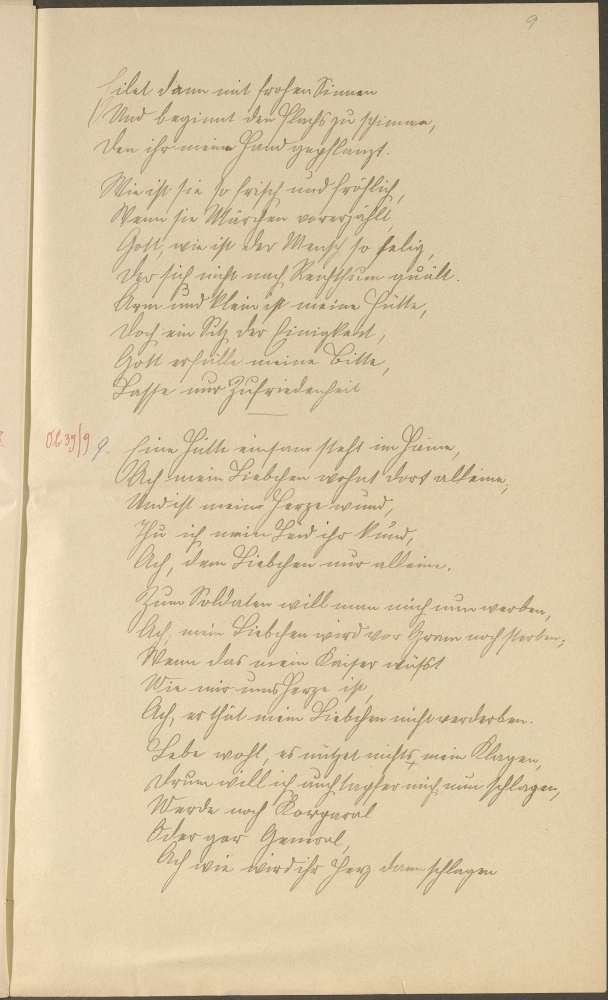 9
Eilet dann mit frohen Sinnen
Und beginnt den Flachs zu spinnen,
Den ihr meine Hand gepflanzt.
Wie ist sie so frisch und fröhlich,
Wenn sie Märchen vorerzählt,
Gott, wie ist der Mensch so selig,
Der sich nicht nach Reichthum quält.
Arm und klein ist meine Hütte,
Doch ein Sitz der Einigkeit,
Gott erfülle meine Bitte,
Lasse nur Zufriedenheit
39/9 9. Eine Hütte einsam steht im Haine,
Ach mein Liebchen wohnt dort alleine,
Und ist meine Herze wund,
Thu ich mein Leid ihr kund,
Ach, dem Liebchen nur alleine.
Zum Soldaten will man mich nun werben,
Ach, mein Liebchen wird vor Gram noch sterben,
Wenn das mein Kaiser wüßt
Wie mir ums Herze ist,
Ach, er thät mein Liebchen nicht verderben.
Lebe wohl, es nützet nichts mein Klagen,
Drum will ich auch tapfer mich nun schlagen,
Werde noch Korporal
Oder gar General,
Ach wie wird ihr Herz dann schlagen